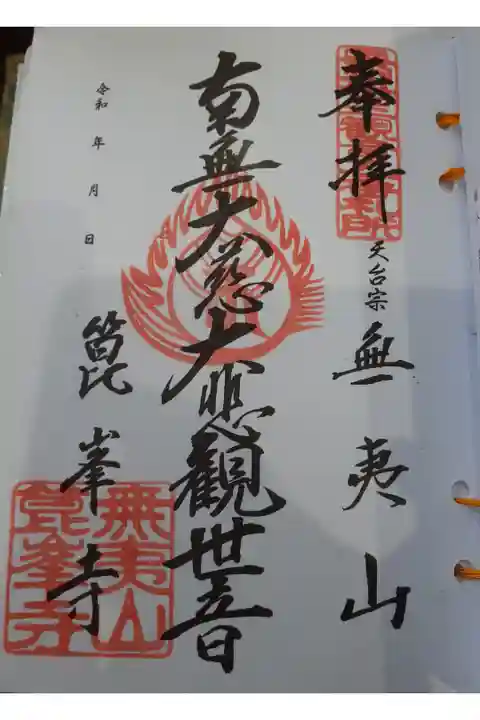 奉拝
天台宗 無夷山
南無大慈大悲観世音
箟峯寺
令和 年 月 日
無夷山
箟峯寺